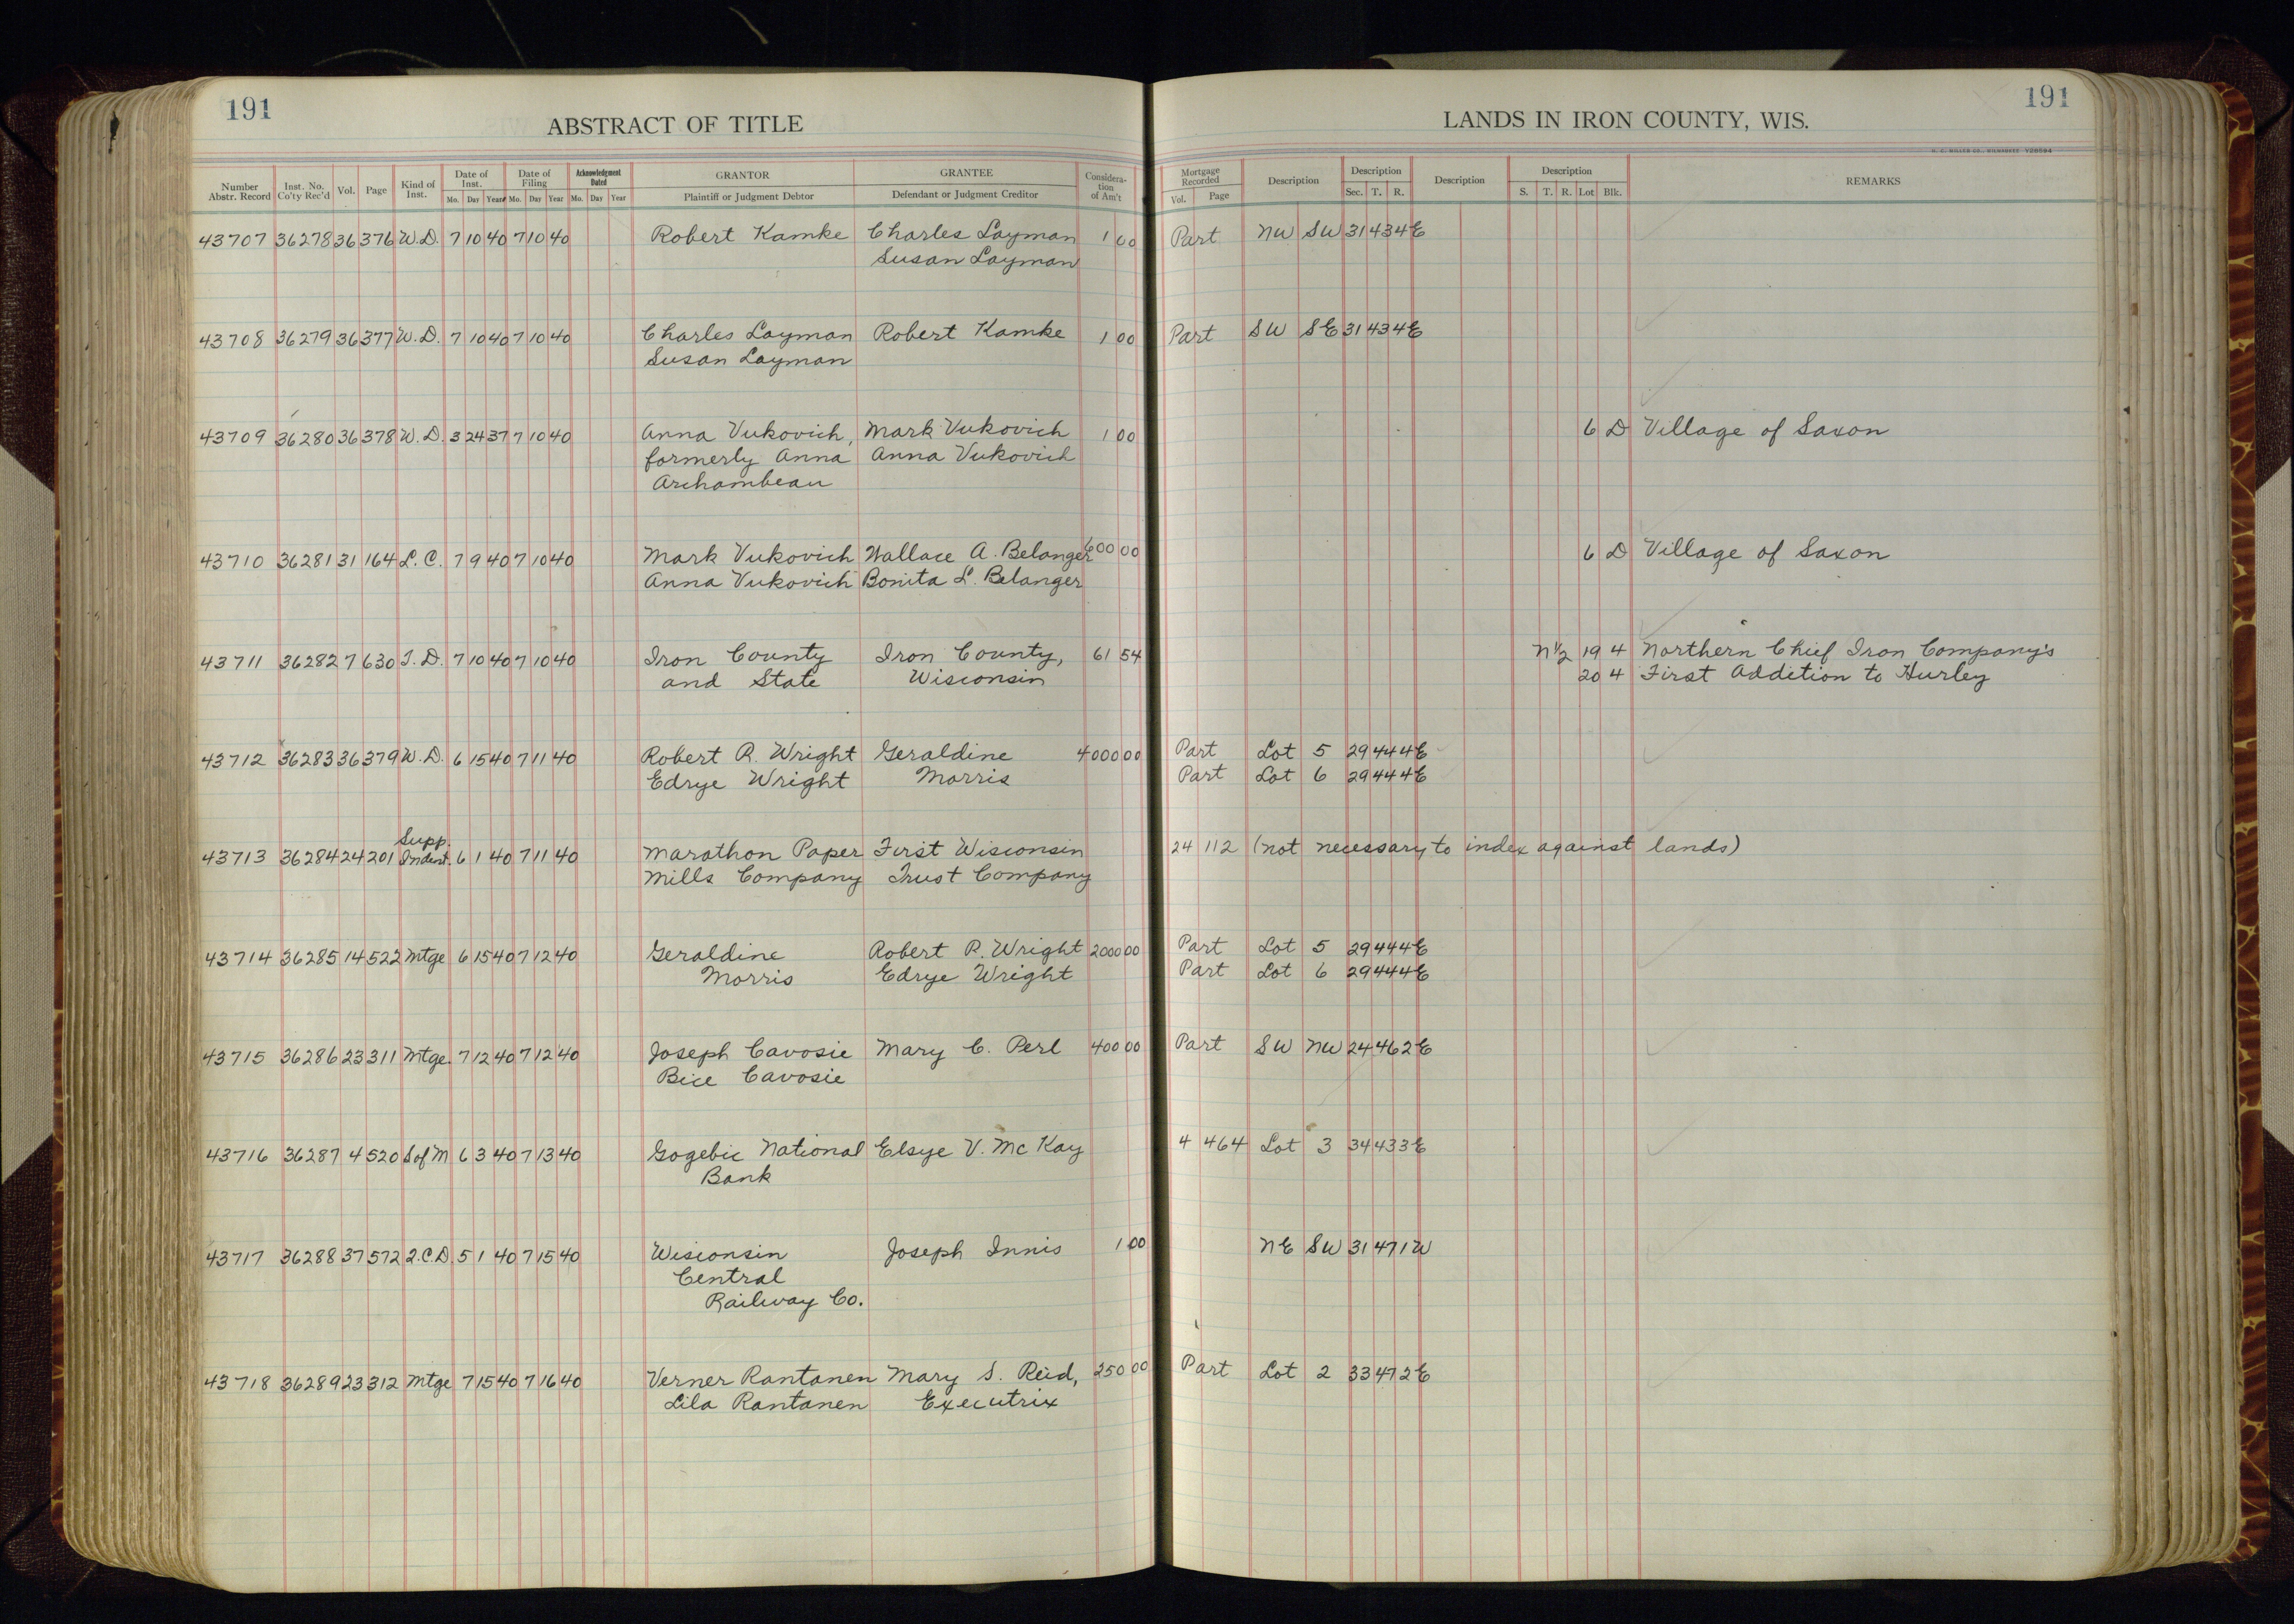 191
ABSTRACT OF TITLE
Number Abstr. Record Inst. No. Co'ty Rec'd Vol. Page Kind of Inst. Date of Inst. Mo. Day Year Date of Filing Mo. Day Year Acknowledgment Dated Mo. Day Year GRANTOR Plaintiff or Judgment Debtor GRANTEE Defendant or Judgment Creditor Considera-tion of Am't
43707 36278 36 376 W.D. 7 10 40 7 10 40 Robert Kamke Charles Layman 1 00
Susan Layman
43708 36279 36 377 W.D. 7 10 40 7 10 40 Charles Layman Robert Kamke 1 00
Susan Layman
43709 36280 36 378 W.D. 3 24 37 7 10 40 Anna Vukovich, Mark Vukovich 1 00
formerly Anna Anna Vukovich
Archambeau
43710 36281 31 164 L.C. 7 9 40 7 10 40 Mark Vukovich Wallace A. Belanger 600 00
Anna Vukovich Bonita L. Belanger
43711 36282 7 630 T.D. 7 10 40 7 10 40 Iron County Iron County, 61 54
and State Wisconsin
43712 36283 36 379 W.D. 6 15 40 7 11 40 Robert R. Wright Geraldine 4000 00
Edrye Wright Morris
Supp.
43713 36284 24 201 Indent. 6 1 40 7 11 40 Marathon Paper First Wisconsin
Mills Company Trust Company
43714 36285 14 522 Mtge 6 15 40 7 12 40 Geraldine Robert R. Wright 2000 00
Morris Edrye Wright
43715 36286 23 311 Mtge. 7 12 40 7 12 40 Joseph Cavosie Mary C. Perl 400 00
Bice Cavosie
43716 36287 4 520 S of M 6 3 40 7 13 40 Gogebic National Elsye V. McKay
Bank
43717 36288 37 572 Q.C.D. 5 1 40 7 15 40 Wisconsin Joseph Innis 1 00
Central
Railway Co.
43718 36289 23 312 Mtge 7 15 40 7 16 40 Verner Rantanen Mary S. Reid, 250 00
Lila Rantanen Executrix
191
LANDS IN IRON COUNTY, WIS.
H. C. MILLER CO., MILWAUKEE
Mortgage Recorded Vol. Page Description Description Sec. T. R. Description Description S. T. R. Lot Blk. REMARKS
Part NW SW 31 43 4E
Part SW SE 31 43 4E
6 D Village of Saxon
6 D Village of Saxon
N½ 19 4 Northern Chief Iron Company's
20 4 First Addition to Hurley
Part Lot 5 29 44 4E
Part Lot 6 29 44 4E
24 112 (not necessary to index against lands)
Part Lot 5 29 44 4E
Part Lot 6 29 44 4E
Part SW NW 24 46 2E
4 464 Lot 3 34 43 3E
NE SW 31 47 1W
Part Lot 2 33 47 2E